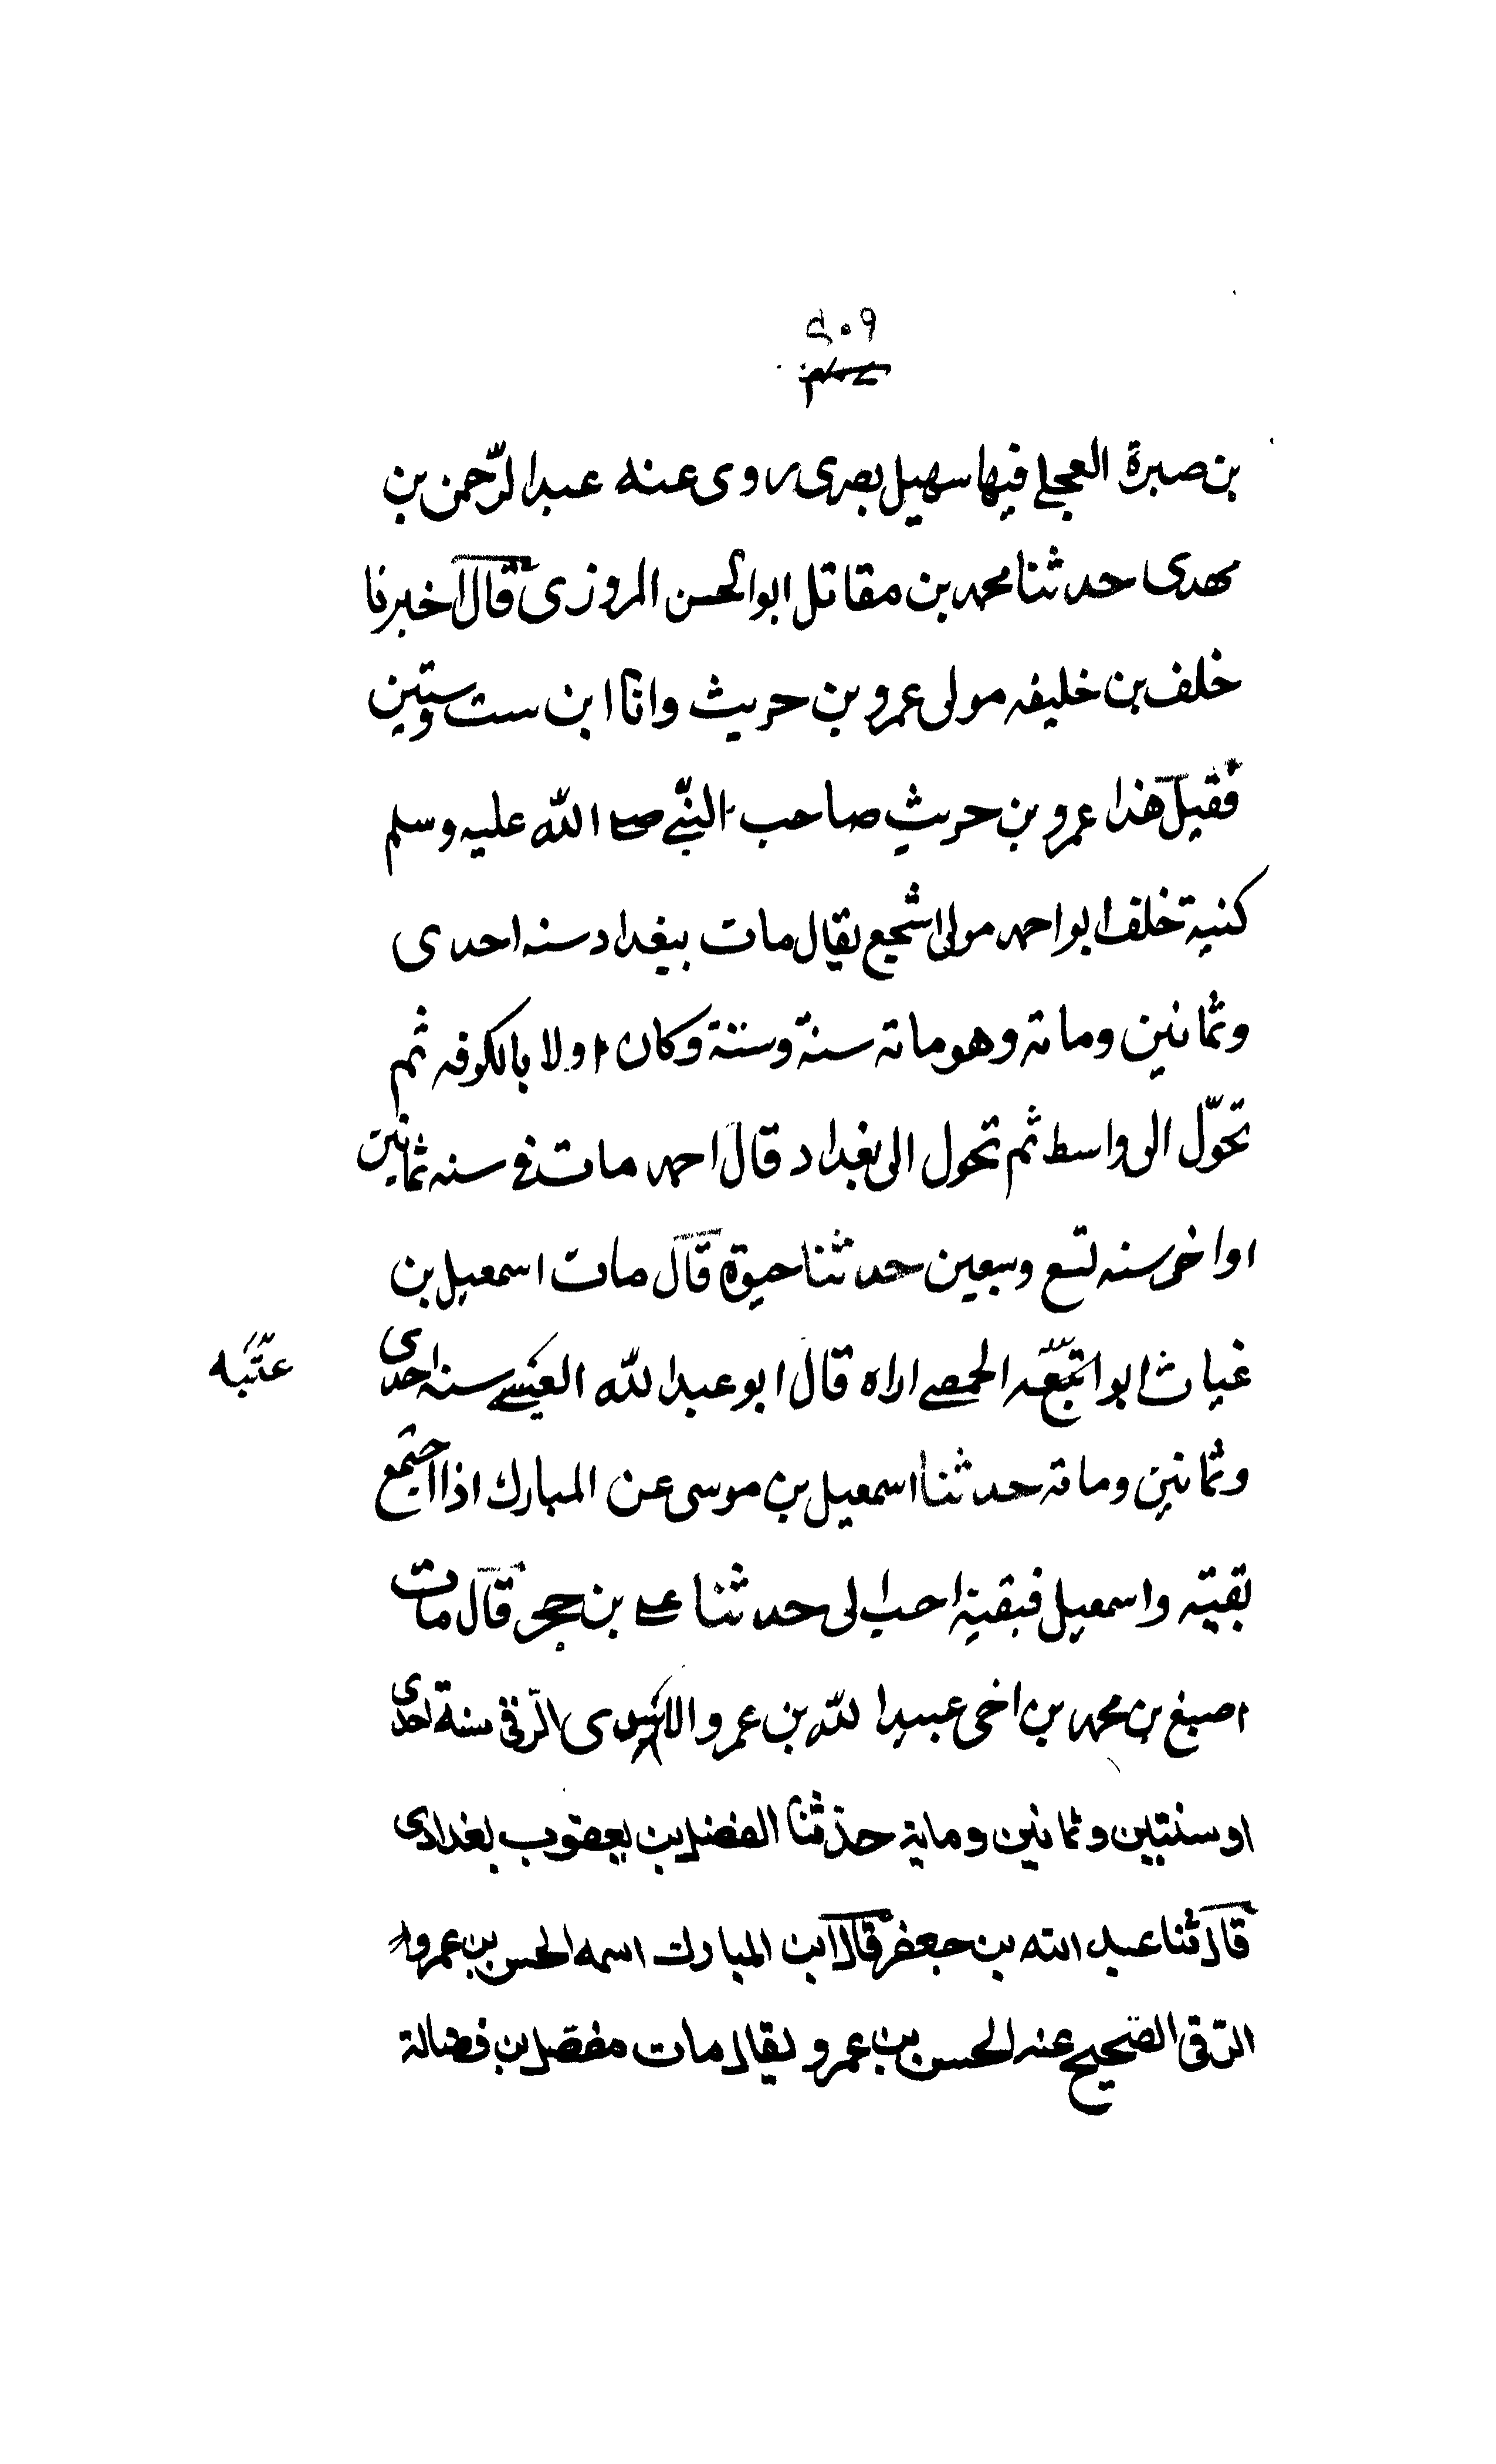 بن صبرة العجلے فيها سهيل بصرى روى عنه عبد الرّحمن بن
مهدى حدثنا محمد بن مقاتل ابو الحسن المروزى قال اخبرنا
خلف بن خليفه مولى عمرو بن حريث وانا ابن ست وستين
فقيل هذا عمرو بن حريث صاحب النّبي صلے الله عليه وسلم
كنية خلف ابو احمد مولى اشجع يقال مات ببغداد سنه احدى
وثمانين ومائة وهو مائة سنة وسنة وكان اولا بالكوفه ثم
تحوّل الى واسط ثم تحول الى بغداد قال احمد مات فى سنه ثمانين
اواخر سنه تسع وسبعين حدثنا حيوة قال مات اسمعيل بن
غياث ابو الحمصے اراه قال ابو عبد الله سنه احدى
عتبه
وثمانين ومائة حدثنا اسمعيل بن موسى عن المبارك اذا اجتمع
بقية واسمعيل فبقية احب الى حدثنا علے بن حجر قال مات
اصبغ بن محمد بن اخى عبيد الله بن عمرو الرّقى سنة احدى
او سنتين وثمانين ومائة حدثنا الفضل بن يعقوب بغدادى
قال ثنا عبد الله بن جعفر قال ابن المبارك اسمه الحسن بن عمرو
الرّقى الصّحيح عنه الحسن بن عمرو يقال مات مفضل بن فضالة